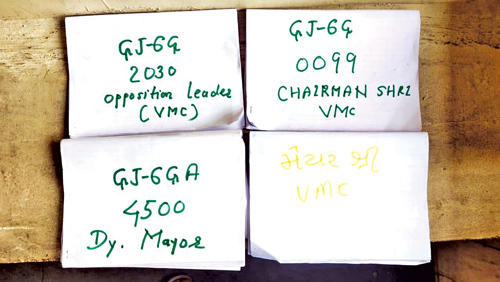 GJ-6G
2030
opposition leader
(VMC)
GJ-6G
0099
CHAIRMAN SHRI
VMC
GJ-6GA
4500
Dy. Mayor
મેયર શ્રી
VMC